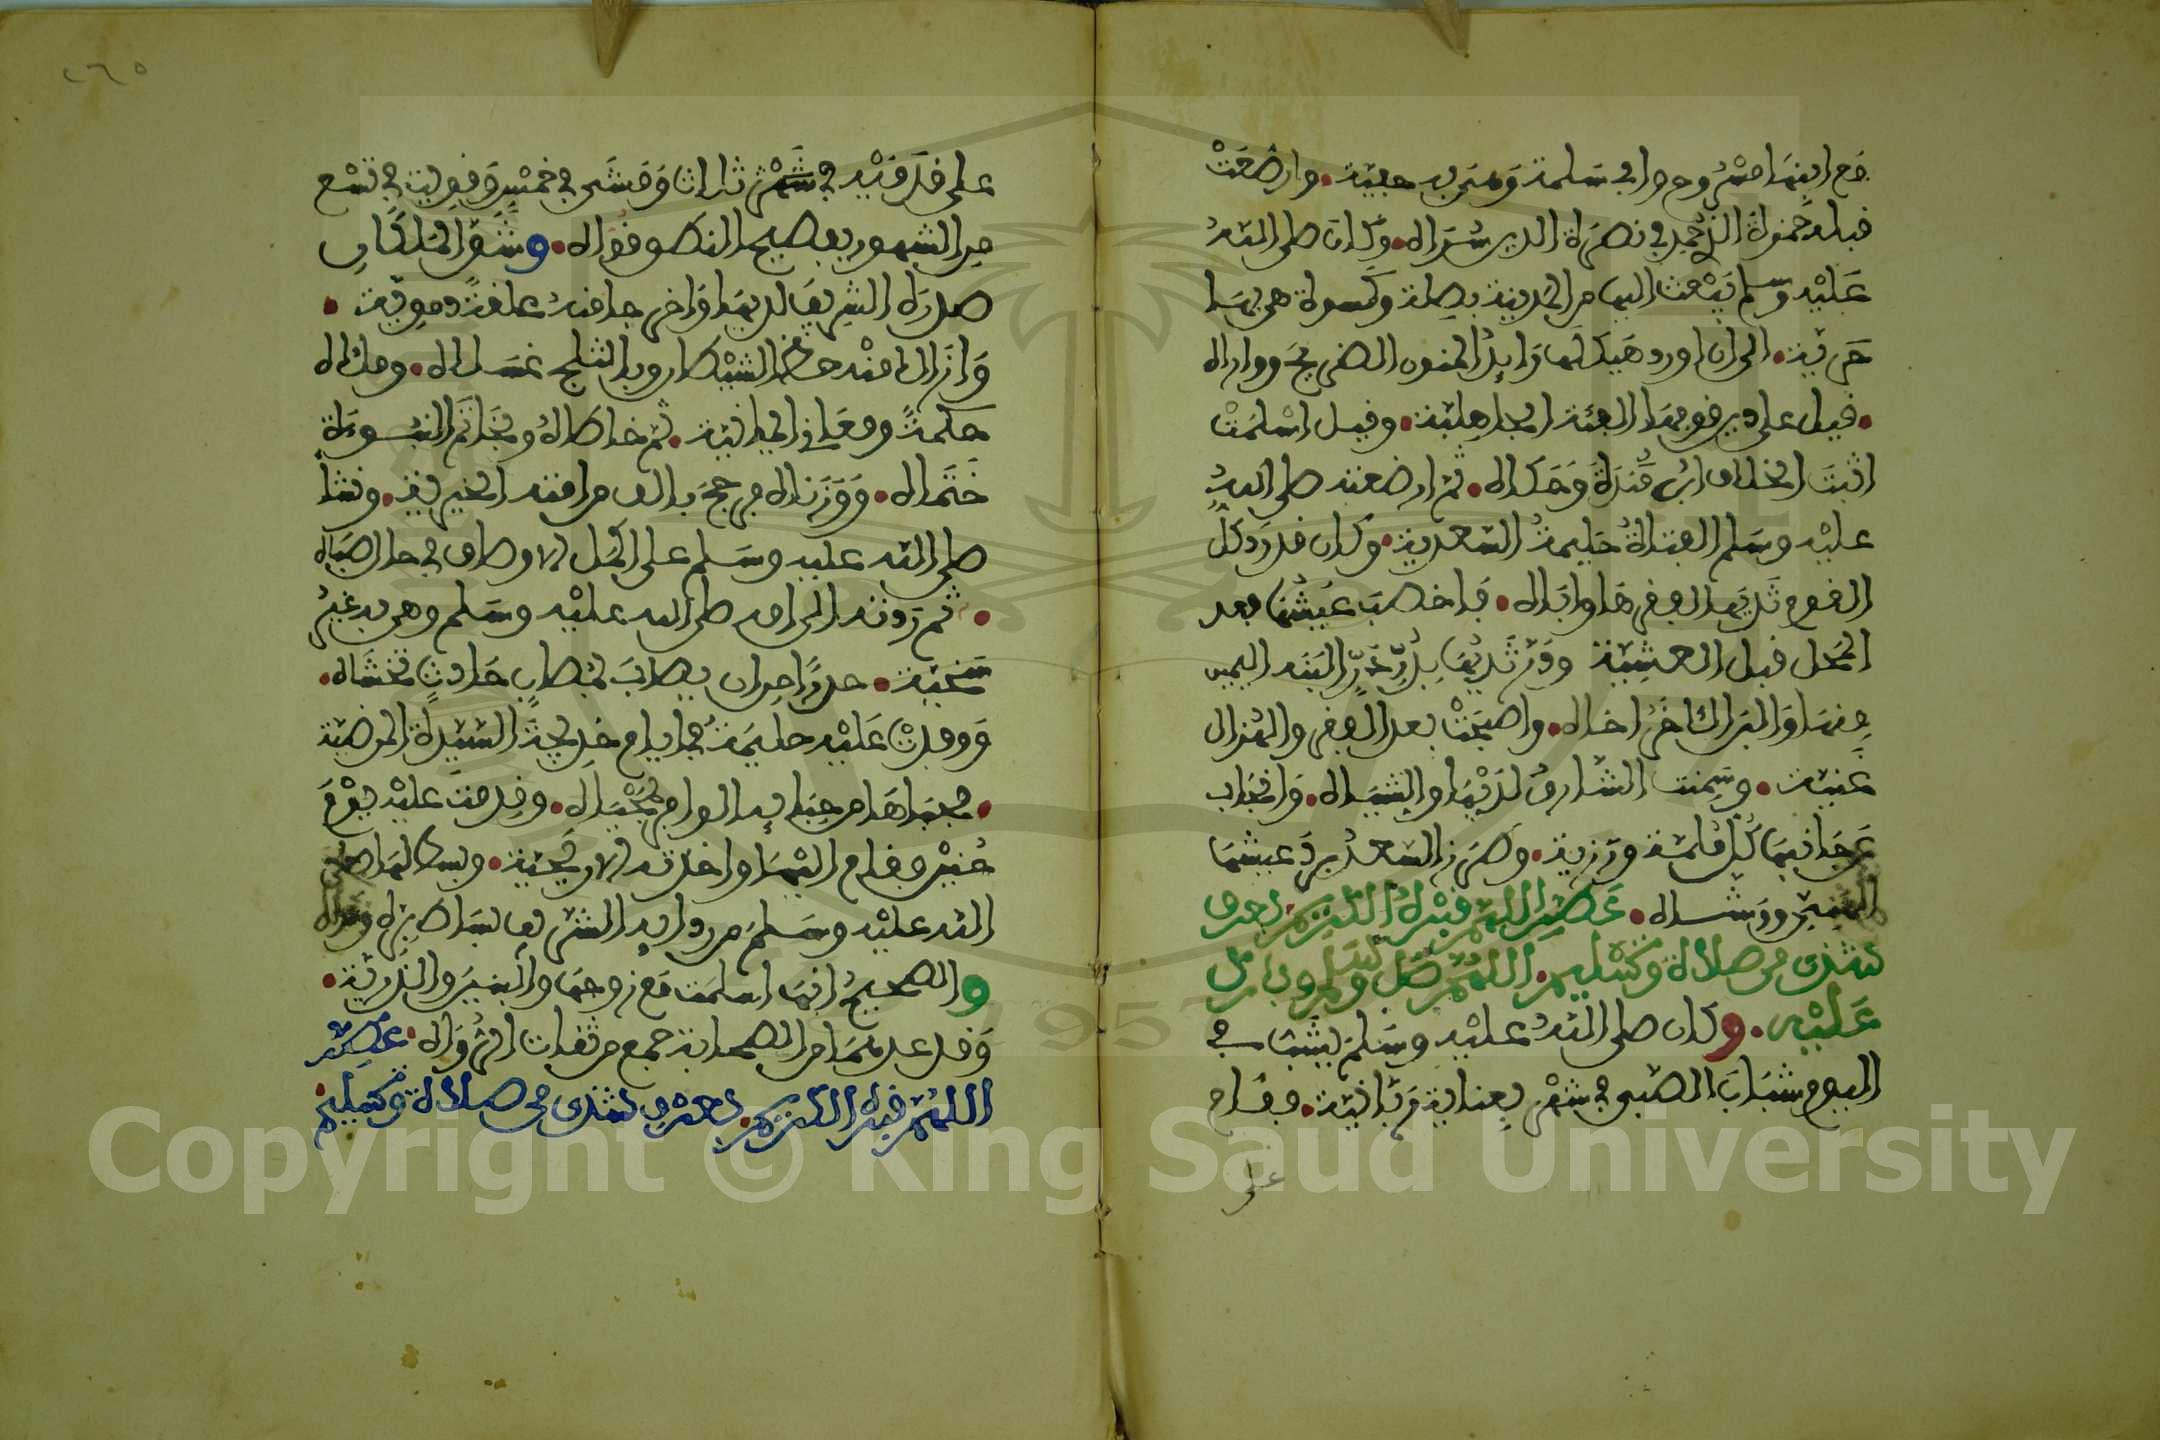 مع ابنها مسروح وابي سلمة وهي به حفية. وارضعت
قبله حمزة الذي حمد في نصرة الدين سراه. وكان صلى الله
عليه وسلم يبعث اليها من المدينة بصلة وكسوة هي بها
حرية. الى ان اورد هيكلها رايد المنون الضريح وواراه
. قيل على دين قومها الفئة الجاهلية. وقيل اسلمت
اثبت الخلاف ابن مندة وحكاه. ثم ارضعته صلى الله
عليه وسلم الفتاة حليمة السعدية. وكان قد رد كل
القوم ثديها لفقرها واباه. فاخصب عيشها بعد
المحل قبل العشية ودر ثديها بدر در البنه اليمين
منهما والبن الاخر اخاه. واصبحت بعد الفقر والهزال
غنية. وسمنت الشارف لديها والشياه. وانجاب
عن جانبها كل ملمة ورزية. وطرز السعد برد عيشها
الهني ووشاه. عطر اللهم قبره الكريم. بعرف
شذي من صلاة وتسليم. اللهم صل وسلم وبارك
عليه. وكان صلى الله عليه وسلم يشب في
اليوم شباب الصبي في شهر بعناية ربانية. فقام
على
على قدميه في شهر ثلاث ومشى في خمس وقويت في تسع
من الشهور بفصيح النطق قواه. وشق الملكان
صدره الشريف لديها واخرجا منه علقة دموية.
وازالا منه حظ الشيطان وبالثلج غسلاه. وملاه
حكمة ومعاني ايمانية. ثم خاطاه وبخاتم النبوءة
ختماه. ووزناه فرجح بالف من امته الخيرية. ونشا
صلى الله عليه وسلم على اكمل الاوصاف في حال صباه
. ثم ردته الى امه صلى الله عليه وسلم وهي به غير
سخية. حذرا من ان يصاب بمصاب حادث تخشاه.
ووفدت عليه حليمة في ايام خديجة السيدة المرضية
. فحباها من حبايه الوافر بحياه. وقدمت عليه يوم
حنين فقام اليها واخذته الاريحية. وبسط لها صلى
الله عليه وسلم من ردايه الشريف بساط بره ونداه
والصحيح انها اسلمت مع زوجها والبنين والذرية.
وقد عدهما من الصحابة جمع من ثقات الرواه. عطر
اللهم قبره الكريم. بعرف شذي من صلاة وتسليم.
٢٦٥
Copyright © King Saud University
1957